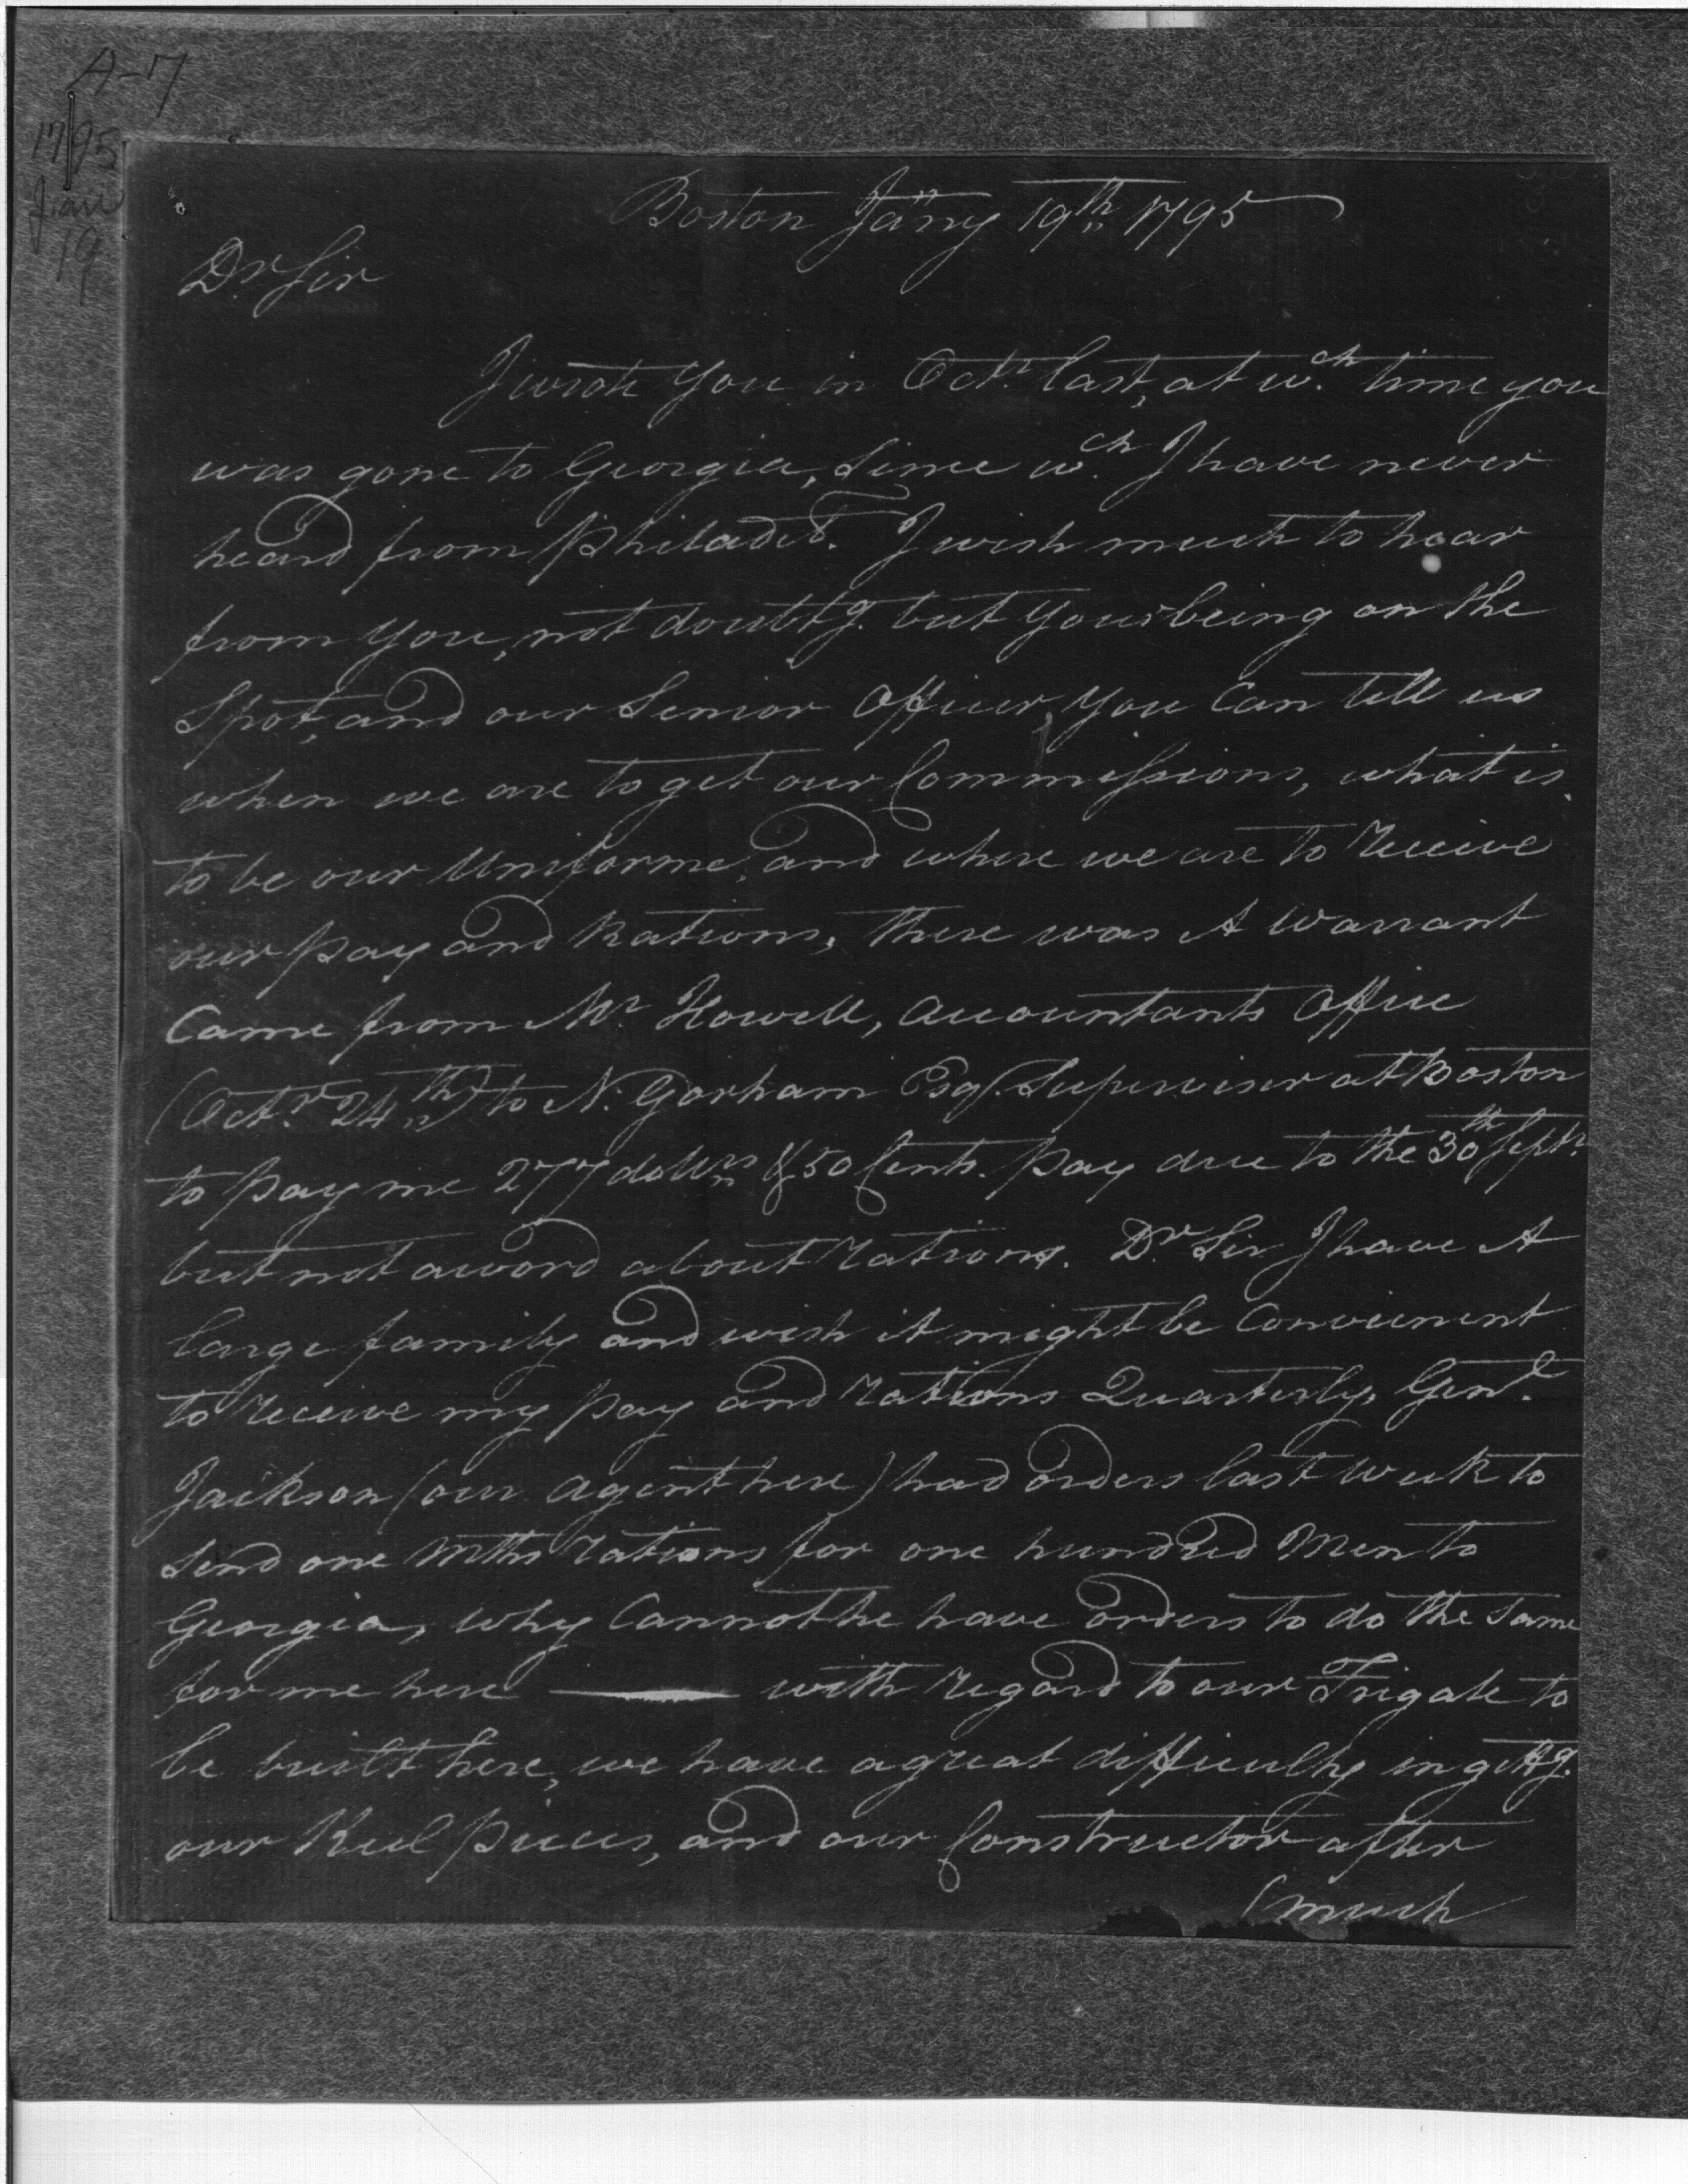 A-7
1795
Jan
19
Boston Jañy 19th 1795
Dr Sir
I wrote you in Octr. last, at wch. time you
was gone to Georgia, Since wch. I have never
heard from Philada. I wish much to hear
from you, not doubtg. but your being on the
Spot, and our Senior Officer, you can tell us
when we are to get our Commissions, what is
to be our Uniforme, and where we are to receive
our pay and Rations, there was A Warrant
Came from Mr Howell, accountants Office
(Octr. 24th) to N. Gorham Esq. Superviser at Boston
to pay me 277 dollrs & 50 Cents. pay due to the 30th Septr.
but not a word about rations. Dr. Sir I have A
large family and wish it might be Conveinent
to receive my pay and rations Quarterly, Genl.
Jackson (our agent here) had orders last week to
Send one Mths rations for one hundred Men to
Georgia, why Cannot he have orders to do the same
for me here — with regard to our Frigate to
be built here, we have a great difficulty in gettg.
our Keel pieces, and our Constructor after
(much